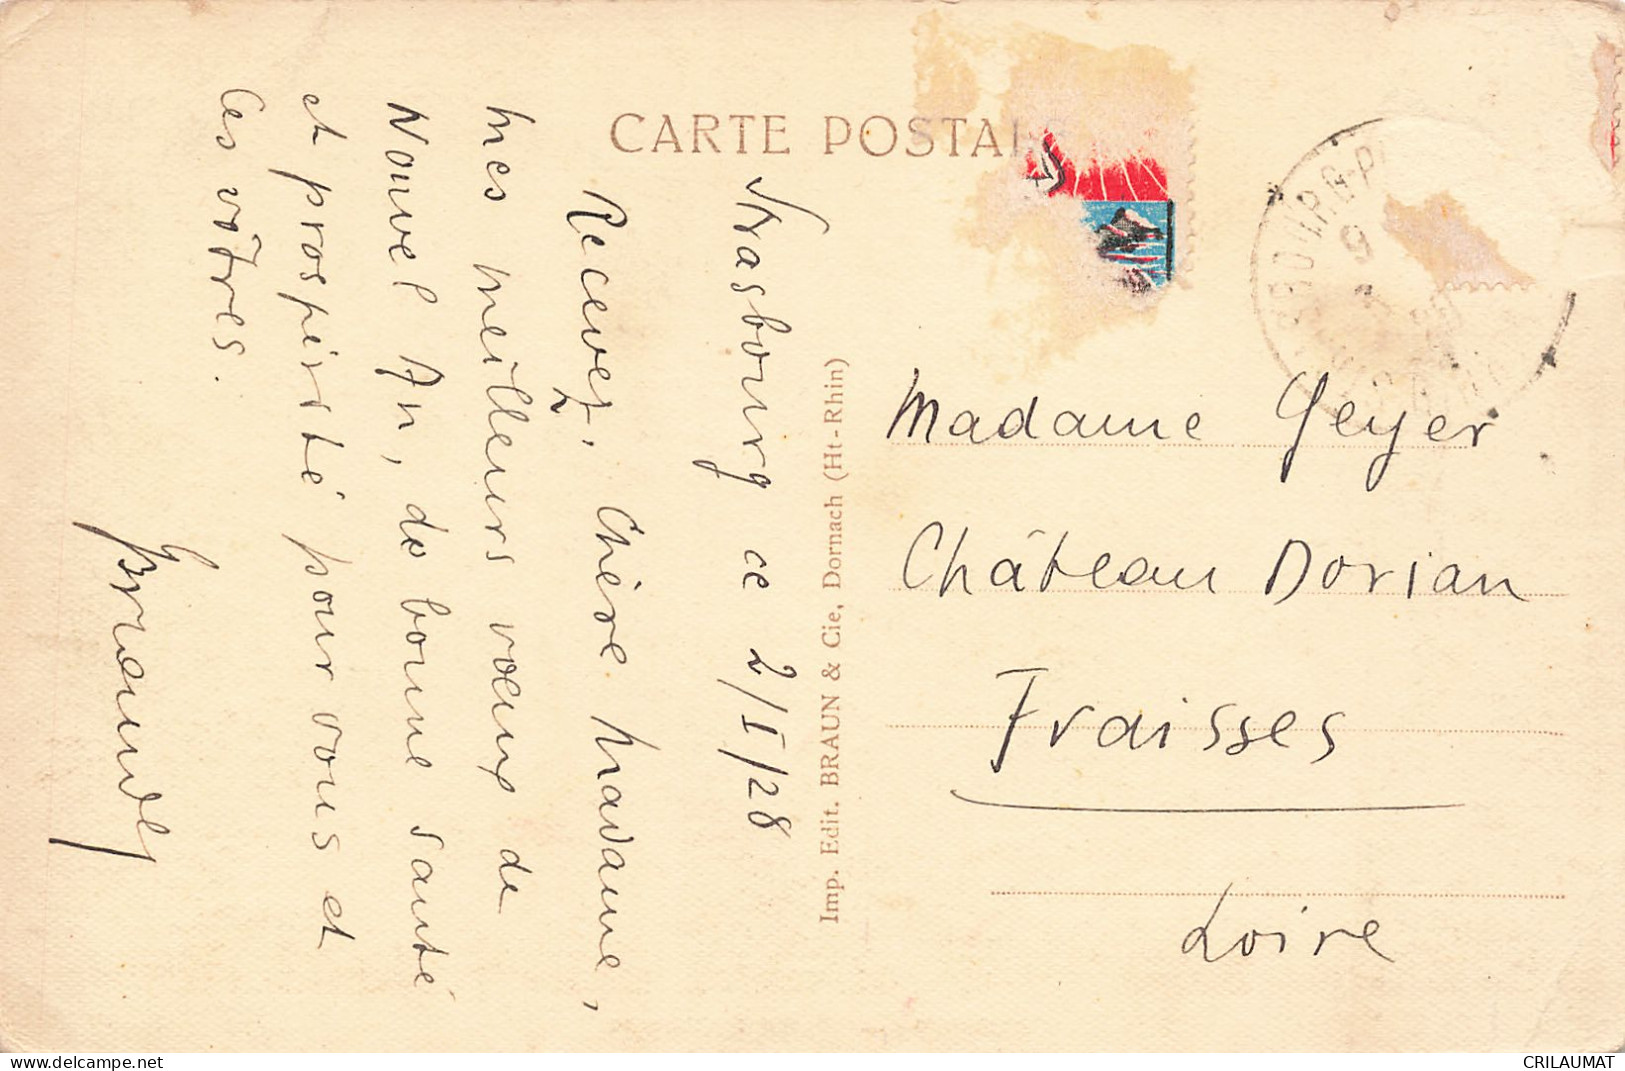 CARTE POSTALE
Strasbourg ce 2/I/28
Recevez, Chère Madame,
mes meilleurs vœux de
Nouvel An, de bonne santé
et prospérité pour vous et
les vôtres.
Imp. Edit. BRAUN & Cie, Dornach (Ht-Rhin)
Madame Geyer
Château Dorian
Fraisses
Loire
www.delcampe.net
CRILAUMAT